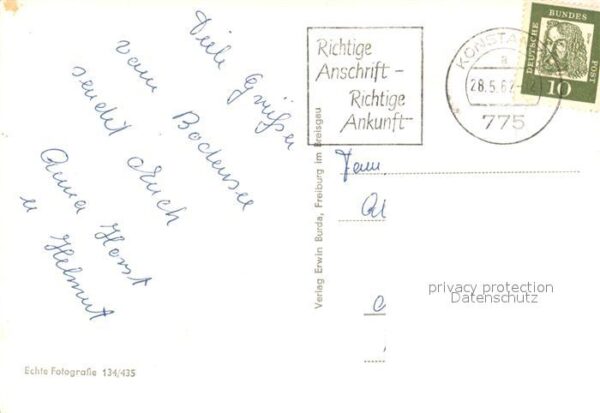 Viele Grüße
vom Bodensee
sendet Euch
Anna Horst
u Helmut
Echte Fotografie 134/435
Verlag Erwin Burda, Freiburg im Breisgau
Richtige
Anschrift –
Richtige
Ankunft
KONSTAN
a
28.5.62
775
DEUTSCHE BUNDES POST
10
Fam.
privacy protection
Datenschutz